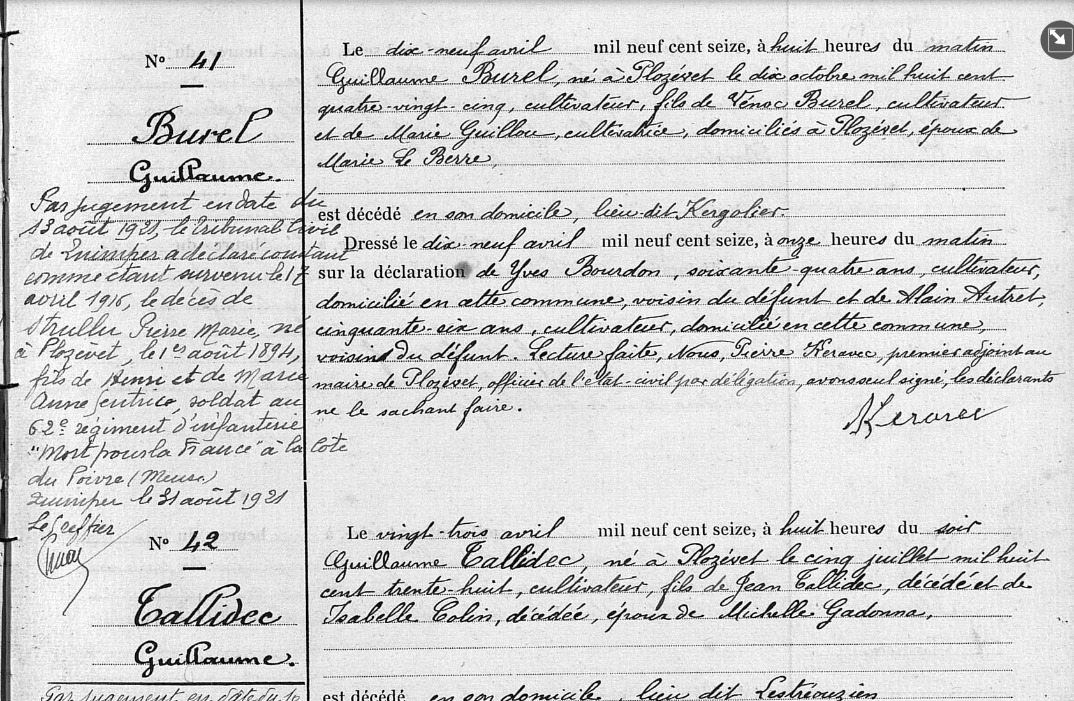 N° 41
Burel
Guillaume.
Par jugement en date du
13 août 1921, le tribunal Civil
de Quimper a déclaré constant
comme étant survenu le 17
avril 1916, le décès de
Strullu Pierre Marie, né
à Plozévet, le 1er août 1894,
fils de Henri et de Marie
Anne Gentric, soldat au
62e régiment d'infanterie
"Mort pour la France" à la côte
du Poivre (Meuse)
Quimper le 31 août 1921
Le Greffier
Le dix-neuf avril mil neuf cent seize, à huit heures du matin
Guillaume Burel, né à Plozévet le dix octobre mil huit cent
quatre-vingt-cinq, cultivateur, fils de Vénoc Burel, cultivateur
et de Marie Guillou, cultivatrice, domiciliés à Plozévet, époux de
Marie Le Berre,
est décédé en son domicile, lieu-dit Kergolier.
Dressé le dix-neuf avril mil neuf cent seize, à onze heures du matin
sur la déclaration de Yves Bourdon, soixante-quatre ans, cultivateur,
domicilié en cette commune, voisin du défunt et de Alain Autret,
cinquante-six ans, cultivateur, domicilié en cette commune,
voisin du défunt. Lecture faite, Nous, Pierre Keravec, premier adjoint au
maire de Plozévet, officier de l'état-civil par délégation, avons seul signé, les déclarants
ne le sachant faire.
Keravec
N° 42
Tallidec
Guillaume.
Par jugement en date du
Le vingt-trois avril mil neuf cent seize, à huit heures du soir
Guillaume Tallidec, né à Plozévet le cinq juillet mil huit
cent trente-huit, cultivateur, fils de Jean Tallidec, décédé et de
Isabelle Colin, décédée, époux de Michelle Gadonna,
est décédé en son domicile, lieu dit Lestréouzien